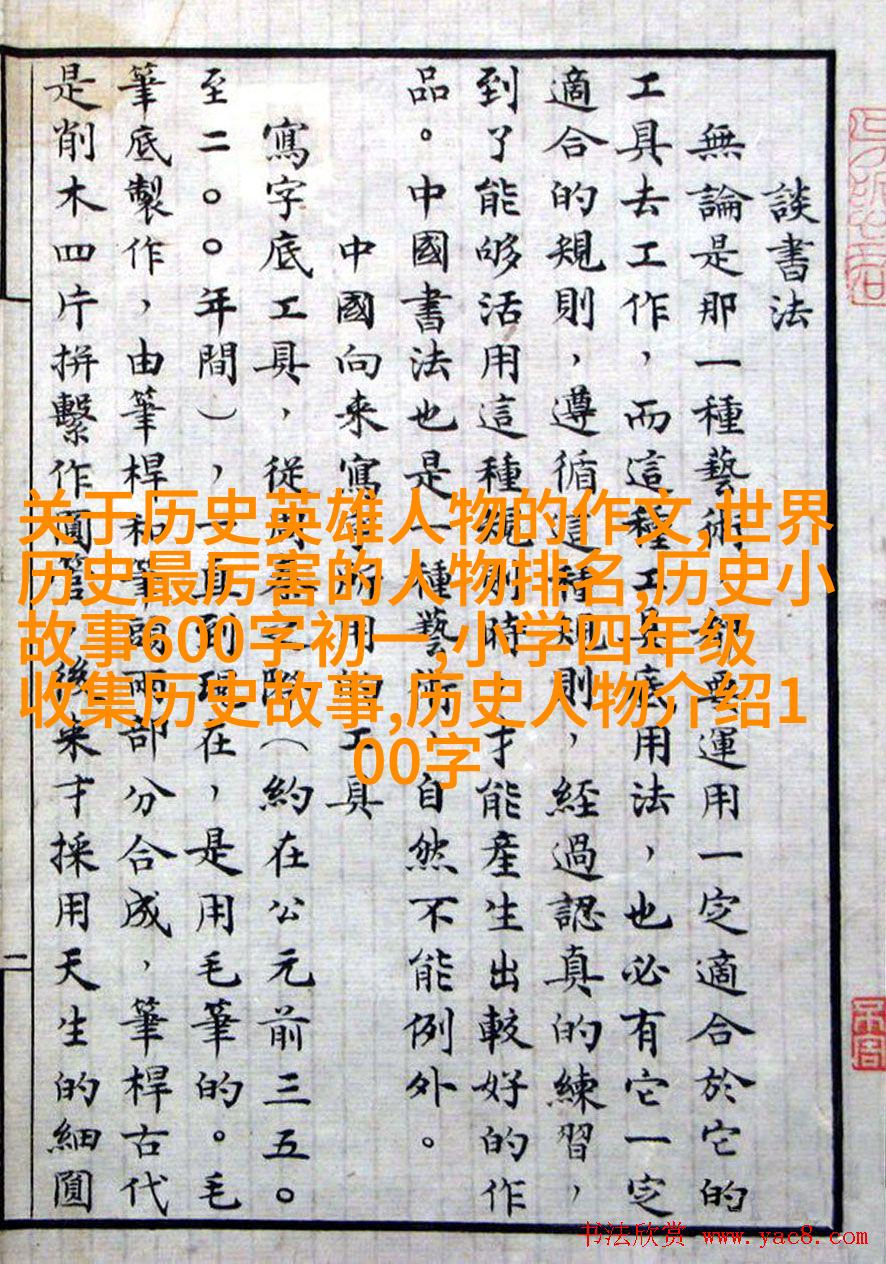 談書法
無論是那一種藝術，都要運用一定適合於它的
工具去工作，而這種工具底用法，也必有它一定
適合的規則，遵循這種規則，經過認真的練習，
到了能够活用這種規則時，才能產生出較好的作
品。中國書法也是一種藝術，自然不能例外。
中國向来寫字所用的工具
寫字底工具，從周秦之際（約在公元前三五〇
至二〇〇年間），一直到現在，是用毛筆的。毛
筆底製作，由筆桿和筆頭兩部分合成，筆桿古代
是削木四片拼繫作圓管，後来才採用天生的細圓
二
关于历史英雄人物的作文,世界
历史最厉害的人物排名,历史小
故事600字初一,小学四年级
收集历史故事,历史人物介绍1
00字
书法欣赏 www.yac8.com